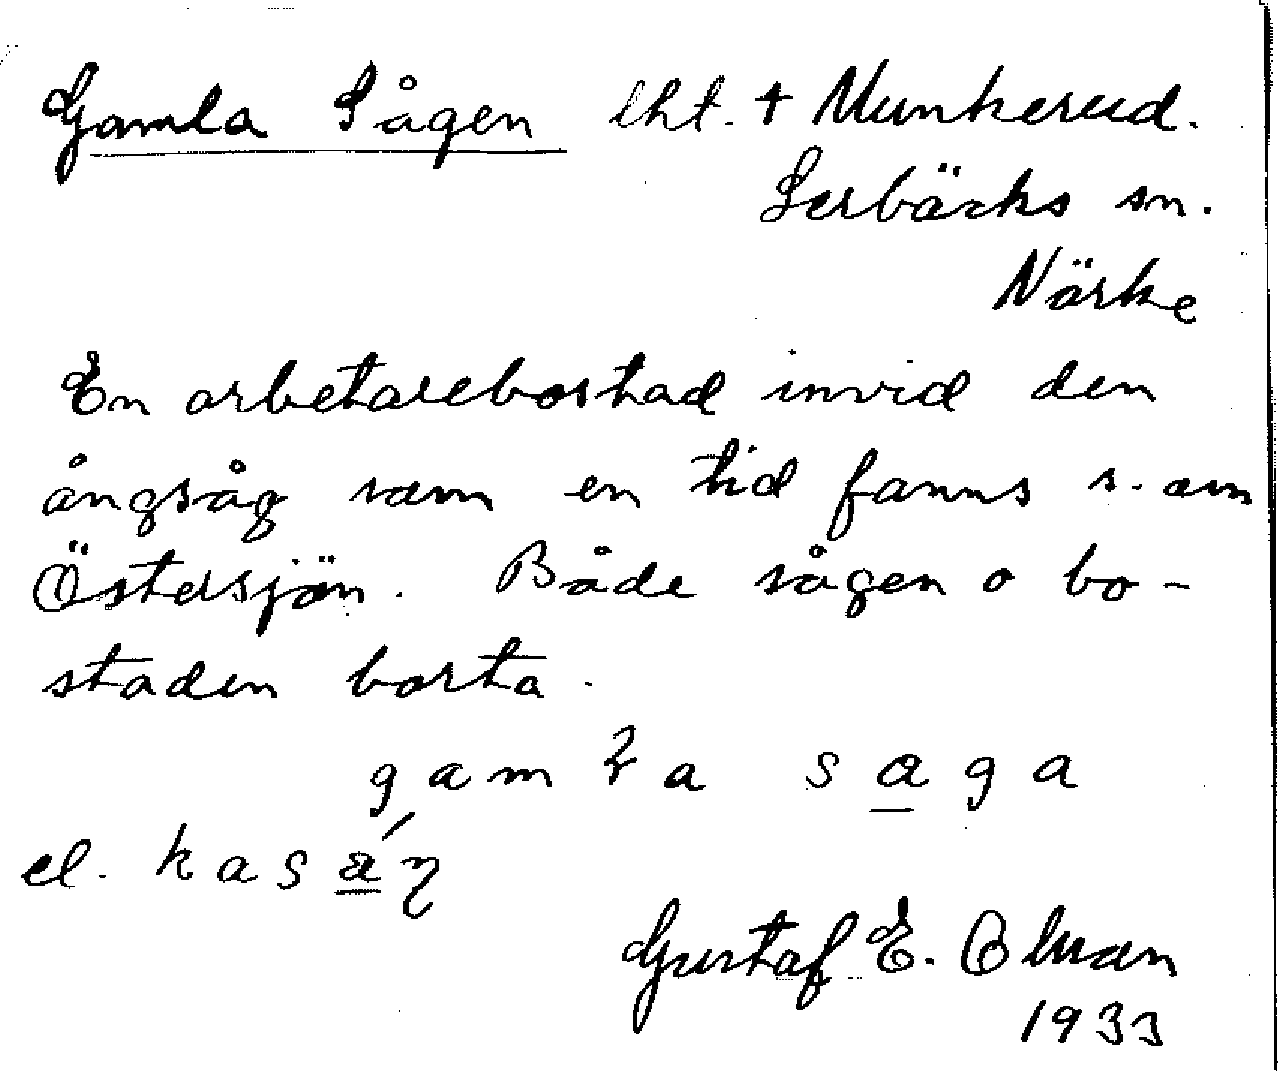 Gamla Sågen lht. + Munkerud.
Lerbäcks sn.
Närke
En arbetarebostad invid den
ångsåg som en tid fanns s. om
Östersjön. Både sågen o bo-
staden borta.
gamla saga
el. kasáŋ
Gustaf E. Olman
1933